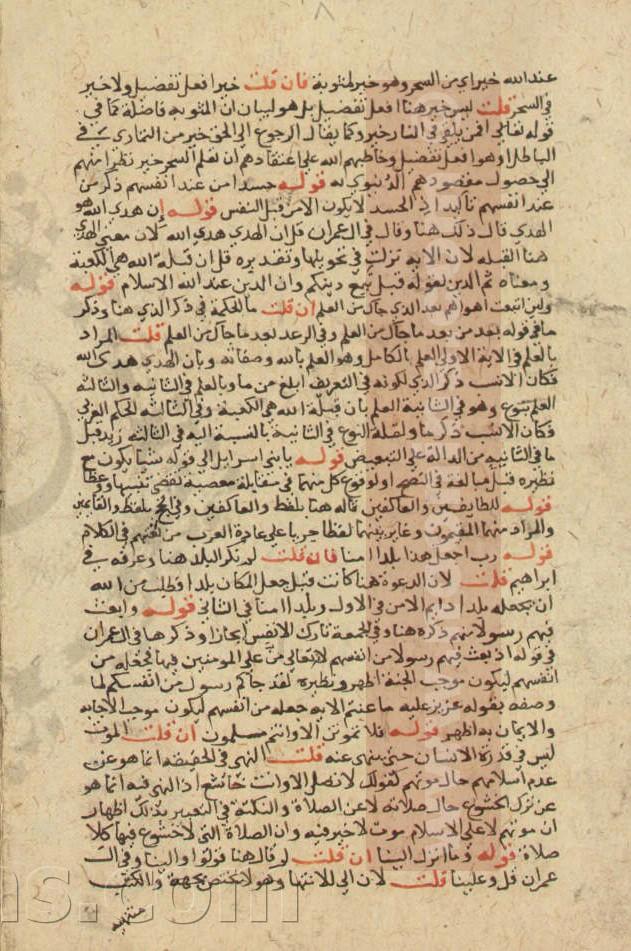 عند الله خير اي من السحر وهو خير لمثوبة فان قلت خير افعل تفضيل ولا خير
في السحر قلت ليس خير هنا افعل تفضيل بل هو لبيان ان المثوبه فاضلة كما في
قوله تعالي افمن يلقي في النار خير وكما يقال الرجوع الي الحق خير من التمادي في
الباطل او هو افعل تفضيل وخاطبهم الله علي اعتقادهم ان تعلم السحر خير نظرا منهم
الي حصول مقصودهم الدنيوي به قوله حسدا من عند انفسهم ذكر من
عند انفسهم تاكيد اذ الحسد لا يكون الا من قبل النفس قوله ان هدي الله هو
الهدي قال ذلك هنا وقال في ال عمران قل ان الهدي هدي الله لان معني الهدي
هنا القبله لان الايه نزلت في تحويلها وتقديره قل ان قبلة الله هي الكعبة
ومعناه ثم الدين لقوله قبل تبع دينكم وان الدين عند الله الاسلام قوله
ولين اتبعت اهواهم بعد الذي جاك من العلم ان قلت ما الحكمة في ذكر الذي هنا وذكر
ما في قوله بعد من بعد ما جاك من العلم وفي الرعد بعد ما جاك من العلم قلت المراد
بالعلم في الاية الاولي العلم الكامل وهو العلم بالله وصفاته وبان الهدي هدي الله
فكان الانسب ذكر الذي لكونه في التعريف ابلغ من ما وبالعلم في الثانيه والثالثه
العلم بنوع وهو في الثانية العلم بان قبلة الله هي الكعبة وفي الثالثه الحكم العربي
فكان الانسب ذكر ما ولقلة النوع في الثانية بالنسبة اليه في الثالثه زيد قبل
ما في الثانيه من الدالة علي التبعيض قوله يا بني اسرايل الي قوله شيا يكون مع
نظيره قبل مبالغة في النصح او لوقوع كل منهما في مقابلة معصية تقتضي تنبيها ووعظا
قوله للطايفين والعاكفين قاله هنا بلفظ والعاكفين وفي الحج بلفظ والقايمين
والمراد منهما المقيمون وغاير بينهما لفظا جريا علي عادة العرب من تفننهم في الكلام
قوله رب اجعل هذا بلدا امنا فان قلت لم نكر البلد هنا وعرفه في
ابراهيم قلت لان الدعوة هنا كانت قبل جعل المكان بلدا فطلب من الله
ان يجعله بلدا دايم الامن في الاول وبلدا امنا في الثاني قوله وابعث
فيهم رسولا منهم ذكره هنا وفي الجمعة تارك الانفس ايجازا وذكرها في ال عمران
في قوله اذ بعث فيهم رسولا من انفسهم لانه تعالي من علي المومنين فيها فجعله من
انفسهم ليكون موجب المنة اظهر ونظيره لقد جاكم رسول من انفسكم لما
وصفه بقوله عزيز عليه ما عنتم الايه جعله من انفسهم ليكون موجب الاجابه
والايمان به اظهر قوله فلا تموتن الا وانتم مسلمون ان قلت الموت
ليس في قدرة الانسان حتي ينهي عنه قلت النهي في الحقيقه انما هو عن
عدم اسلامهم حال موتهم كقولك لا تصل الا وانت خاشع اذ النهي فيه انما هو
عن ترك الخشوع حال صلاته لا عن الصلاة والنكتة في التعبير بذلك اظهار
ان موتهم لا علي الاسلام موت لا خير فيه وان الصلاة التي لا خشوع فيها كلا
صلاة قوله وما انزل الينا ان قلت لم قال هنا قولوا والينا وفي ال
عمران قل وعلينا قلت لان الي للانتها وهو لا يختص بجهة والكتب
منتهيه